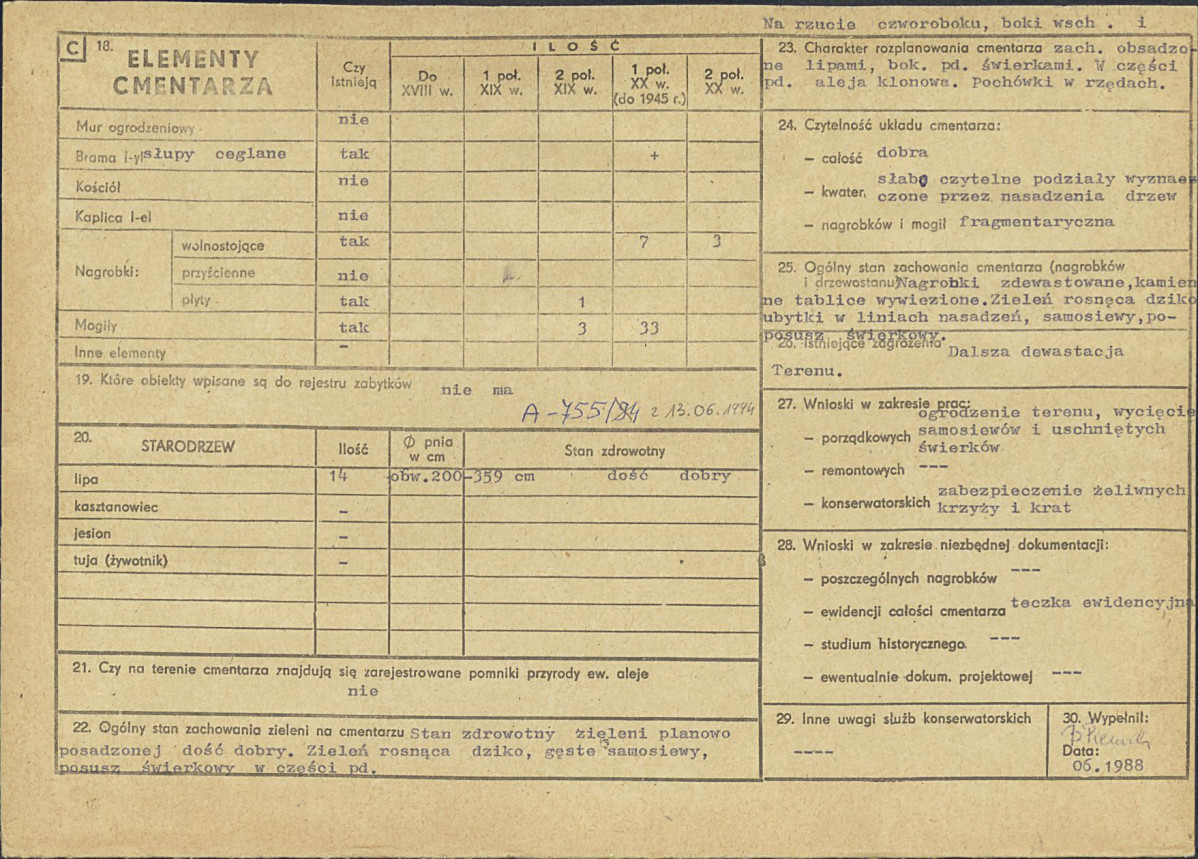 Na rzucie czworoboku, boki wsch . i
C 18.
ELEMENTY
CMENTARZA
Czy
istnieją
I L O Ś Ć
Do
XVIII w.
1 poł.
XIX w.
2 poł.
XIX w.
1 poł.
XX w.
(do 1945 r.)
2 poł.
XX w.
Mur ogrodzeniowy nie
Brama l-y słupy ceglane tak +
Kościół nie
Kaplica l-el nie
Nagrobki:
wolnostojące tak 7 3
przyścienne nie
płyty tak 1
Mogiły tak 3 33
Inne elementy –
19. Które obiekty wpisane są do rejestru zabytków nie ma
A-755/94 z 13.06.1994
20.
STARODRZEW
Ilość
Ø pnia
w cm
Stan zdrowotny
lipa 14 obw.200-359 cm dość dobry
kasztanowiec –
jesion –
tuja (żywotnik) –
21. Czy na terenie cmentarza znajdują się zarejestrowane pomniki przyrody ew. aleje
nie
22. Ogólny stan zachowania zieleni na cmentarzu Stan zdrowotny zieleni planowo
posadzonej dość dobry. Zieleń rosnąca dziko, gęste samosiewy,
posusz świerkowy w części pd.
23. Charakter rozplanowania cmentarza zach. obsadzo-
ne lipami, bok. pd. świerkami. W części
pd. aleja klonowa. Pochówki w rzędach.
24. Czytelność układu cmentarza:
– całość dobra
– kwater, słabo czytelne podziały wyzna
czone przez nasadzenia drzew
– nagrobków i mogił fragmentaryczna
25. Ogólny stan zachowania cmentarza (nagrobków
i drzewostanu) Nagrobki zdewastowane,kamien
ne tablice wywiezione.Zieleń rosnąca dziko
ubytki w liniach nasadzeń, samosiewy,po-
posusz świerkowy.
26. Istniejące zagrożenia Dalsza dewastacja
Terenu.
27. Wnioski w zakresie prac:
– porządkowych ogrodzenie terenu, wycięcie
samosiewów i uschniętych
świerków
– remontowych ---
– konserwatorskich zabezpieczenie żeliwnych
krzyży i krat
28. Wnioski w zakresie niezbędnej dokumentacji:
– poszczególnych nagrobków ---
– ewidencji całości cmentarza teczka ewidencyjna
– studium historycznego. ---
– ewentualnie dokum. projektowej ---
29. Inne uwagi służb konserwatorskich
----
30. Wypełnił:
Data:
06.1988